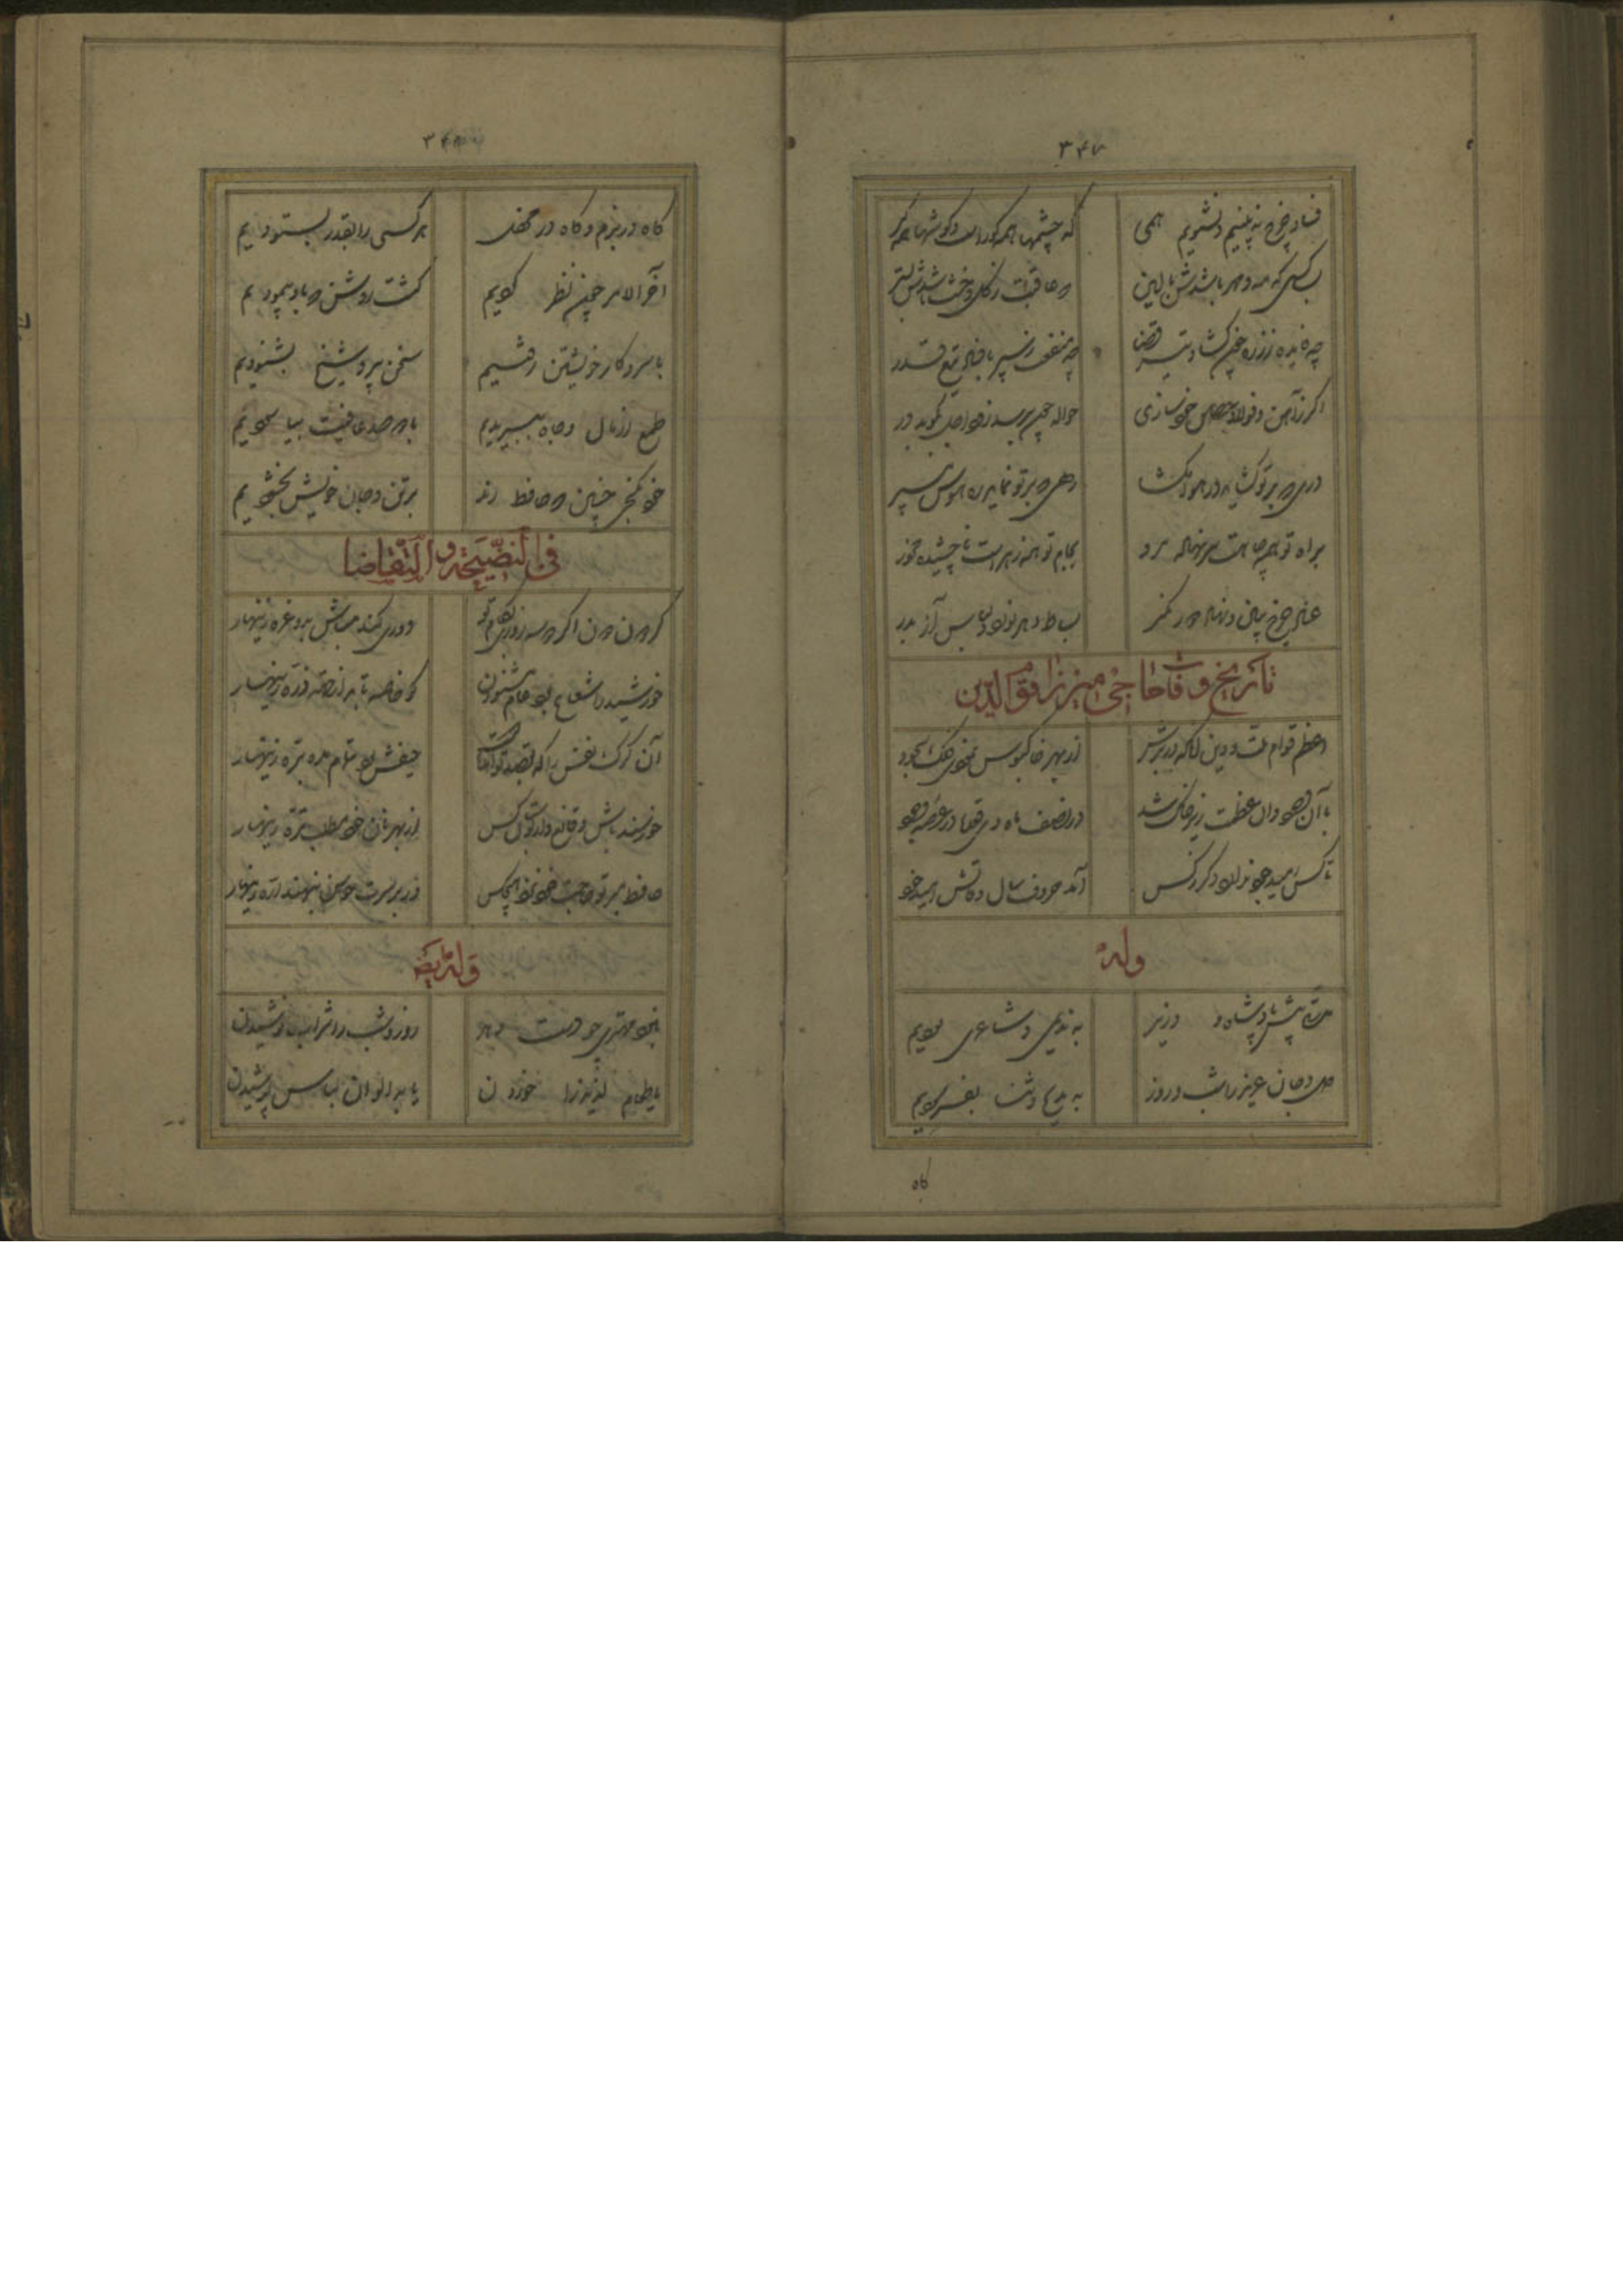 ۳۴۷
فساد چرخ نه بینیم و نشنویم همی
که چشمها همه کورست و کوشها همه کر
بسا کسی که مه و مهر باشدش بالین
که عاقبت ز کل و خشت باشدش بستر
چه فایده ز زره چون کشاد تیر قضا
چه منفعت ز سپر با نفاذ تیغ قدر
اکر ز آهن و فولاد حصن خود سازی
حواله چون برسد زود اجل بکوبد در
دری که بر تو کشاید در هوا مکشا
رهی که بر تو نماید ره هوس مسپر
براه تو همه چاهست سر نهاده مرو
بجام تو همه زهرست ناچشیده مخور
غبار چرخ ببین و نهاد دهر نکر
بساط دهر نورد و لباس آز بدر
تاریخ وفات حاجی میرزا قوام الدین
اعظم قوام ملت و دین آنکه بر درش
از بهر خاکبوس نمودی فلک سجود
با آن وجود و آن عظمت زیر خاک شد
در نصف ماه ذی قعد از عرصه وجود
تا کس امید جود ندارد دکر ز کس
آمد حروف سال وفاتش امید جود
وله
مدتی پیش پادشاه و وزیر
به ندیمی و شاعری بودیم
دل و جان عزیز را شب و روز
به مدیح و ثنا بفرسودیم
کاه
۳۴۸
کاه در بزم و کاه در محفل
هر کسی را بقدر بستودیم
آخر الامر چون نظر کردیم
کشت روشن که باد پیمودیم
با سر و کار خویشتن رفتیم
سخن پیر و شیخ بشنودیم
طمع از مال و جاه ببریدیم
با در عافیت بیاسودیم
خود بکنجی چنین که حافظ رند
بر تن و جان خویش بخشودیم
فی النصیحة و التقاضا
کردون دون اکر دو سه روزی بکام تو
دوری کند مباش برو غره زینهار
خورشید را شعاع بود عام مشنو آن
کو خاصه تابد از جهت ذره زینهار
آن کرک نفس را که بقصد تو
حیفش بود تمام مده بره زینهار
خورسند باش و قانع و از کس
از بهر نان خود مطلب تره زینهار
حافظ بر تو حاجت خود نزد هیچکس
ور بر سرت چو من بنهند اره زینهار
وله ایضا
روز و شب را شراب نوشیدن
یا طعام لذیذ را خوردن
یا بدالوان لباس پوشیدن